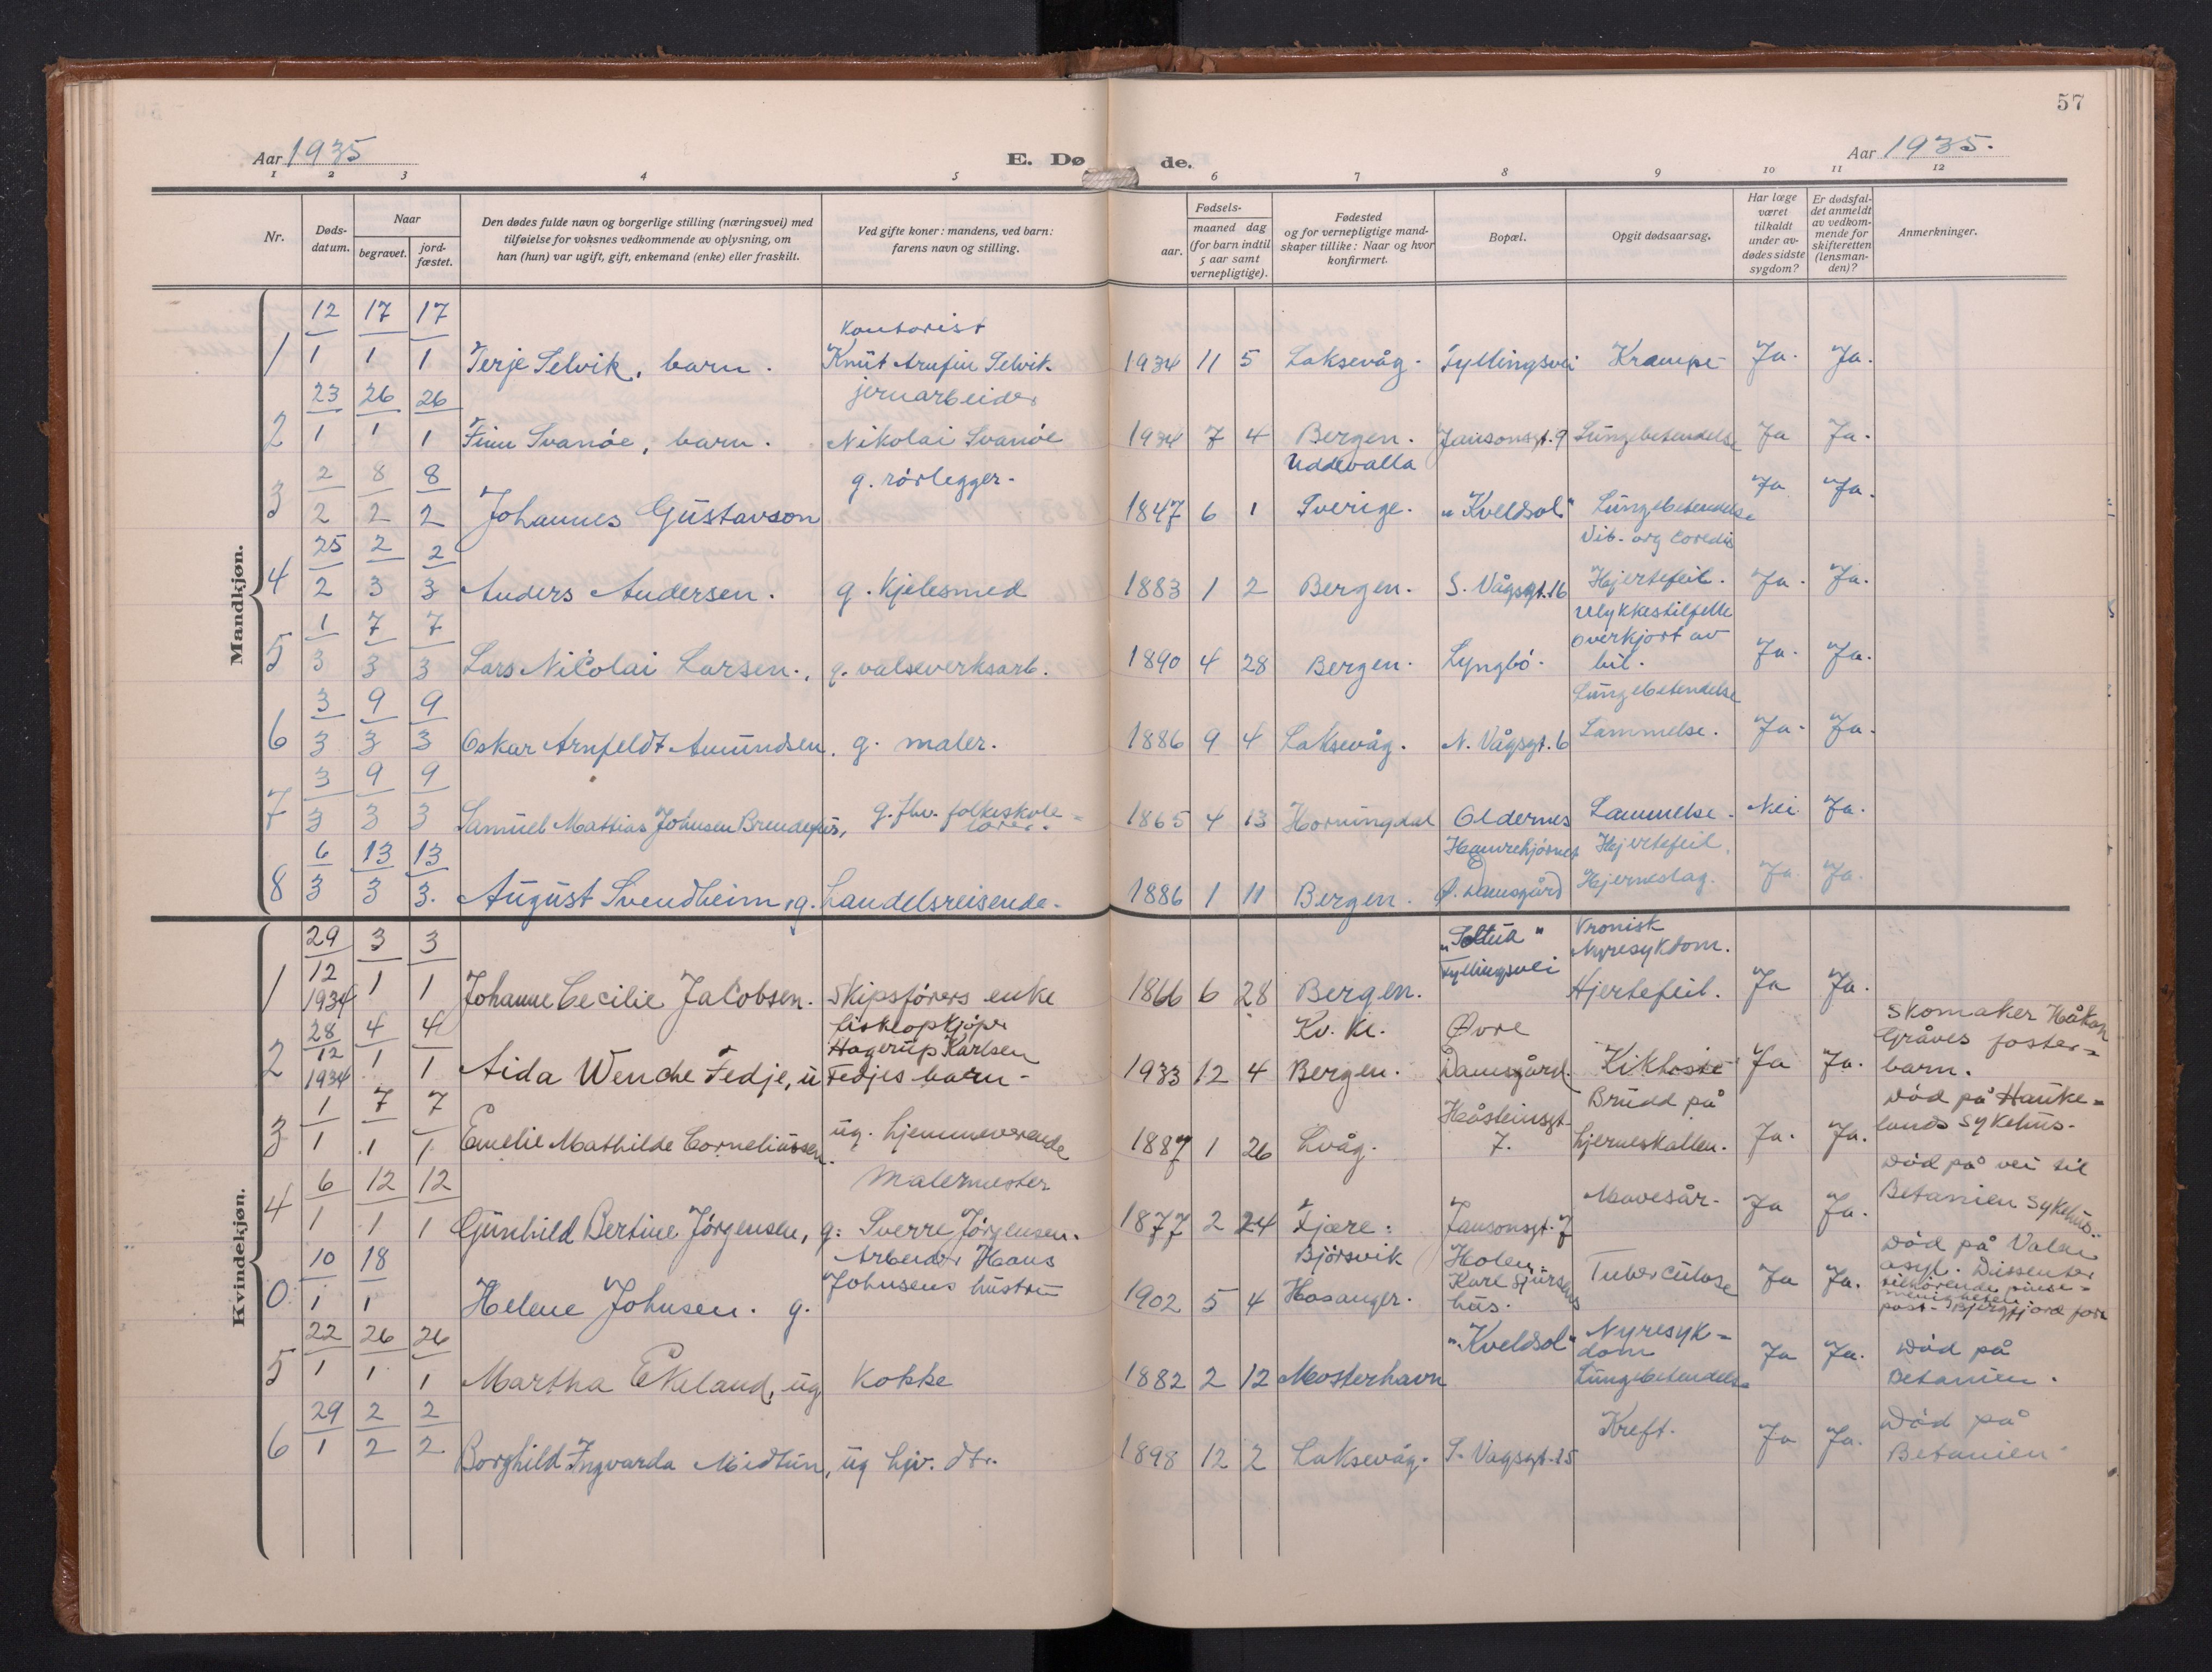 57
Aar 1935
E. Dø de.
Aar 1935.
1 2 3 4 5 6 7 8 9 10 11 12
Nr.
Døds-
datum.
Naar
begravet.
jord-
fæstet.
Den dødes fulde navn og borgerlige stilling (næringsvei) med
tilføielse for voksnes vedkommende av oplysning, om
han (hun) var ugift, gift, enkemand (enke) eller fraskilt.
Ved gifte koner: mandens, ved barn:
farens navn og stilling.
Fødsels-
aar.
maaned dag
(for barn indtil
5 aar samt
vernepligtige).
Fødested
og for vernepligtige mand-
skaper tillike: Naar og hvor
konfirmert.
Bopæl.
Opgit dødsaarsag.
Har læge
været
tilkaldt
under av-
dødes sidste
sygdom?
Er dødsfal-
det anmeldt
av vedkom-
mende for
skifteretten
(lensman-
den)?
Anmerkninger.
Mandkjøn.
12 17 17
Kontorist
1 1 1 1 Terje Selvik, barn. Knut Arnfin Selvik. 1934 11 5 Laksevåg. Fyllingsvei Krampe Ja. Ja.
23 26 26 jernarbeider
2 1 1 1 Finn Svanöe, barn. Nikolai Svanöe 1934 7 4 Bergen. Jansonsgt. 9 Lungebetendelse Ja Ja.
2 8 8 g. rörlegger. Uddevalla
3 2 2 2 Johannes Gustavson 1847 6 1 Sverige. "Kveldsol" Lungebetendelse Ja Ja.
25 2 2 Vit. org cordis
4 2 3 3 Anders Andersen. g. Kjelesmed 1883 1 2 Bergen. S. Vågsgt. 16 Hjertefeil. Ja. Ja.
1 7 7 Ulykkestilfelle
overkjört av
5 3 3 3 Lars Nicolai Larsen., g. valseverksarb. 1890 4 28 Bergen. Lyngbö. bil. Ja. Ja.
3 9 9 Lungebetendelse
6 3 3 3 Oskar Arnfeldt Amundsen, g. maler. 1886 9 4 Laksevåg. N. Vågsgt. 6 Lammelse. Ja. Ja.
3 9 9
7 3 3 3 Samuel Mathias Johnsen g. fhv. folkeskole-
lærer. 1865 4 13 Horningdal Oldernes Lammelse. Nei. Ja.
6 13 13 Hjertefeil.
8 3 3 3. August Svendheim, g. Handelsreisende. 1886 1 11 Bergen. Ø. Damsgård Hjerneslag. Ja. Ja.
Kvindekjøn.
29 3 3 "Soltun" Kronisk
12 Fyllingsvei Nyresykdom.
1 1934 1 1 Johanne Cecilie Jacobsen. Skipsförers enke 1866 6 28 Bergen. Hjertefeil. Ja Ja.
28 4 4 fiskeopkjöper Kv. Kl. Øvre Skomaker Håkon
12 Hagerup Karlsen Gråves foster-
2 1934 1 1 Aida Wenche Fedje, u Fedjes barn 1933 12 4 Bergen. Damsgård. Kikhoste Ja Ja. barn.
1 7 7 Håsteinsgt. Brudd på Död på Hauke-
3 1 1 1 Emelie Mathilde Corneliussen. ug. hjemmeværende 1887 1 26 Lvåg. 7. hjerneskallen. Ja. Ja. lands Sykehus.
6 12 12 Malermester Död på vei til
4 1 1 1 Gunhild Bertine Jörgensen, g: Sverre Jörgensen. 1877 2 24 Fjære: Jansonsgt. 7 Mavesår. Ja Ja. Betanien Sykehus.
10 18 Arbeider Hans Björsvik Holen. Död på Valen
asyl. Dissenter
0 1 1 Helene Johnsen. g. Johnsens hustru 1902 5 4 Hosanger. Karl Sjursens
hus. Tuberculose Ja Ja. tilhörende pinse-
menigheten
22 26 26 "Kveldsol" Nyresyk-
dom Död på
5 1 1 1 Martha Ekeland, ug Kokke 1882 2 12 Mosterhavn Lungebetendelse Ja Ja. Betanien.
29 2 2 Kreft. Död på
6 1 2 2 Borghild Ingvarda Midtun, ug hjv. dtr. 1898 12 2 Laksevåg. S. Vågsgt. 15 Ja Ja. Betanien